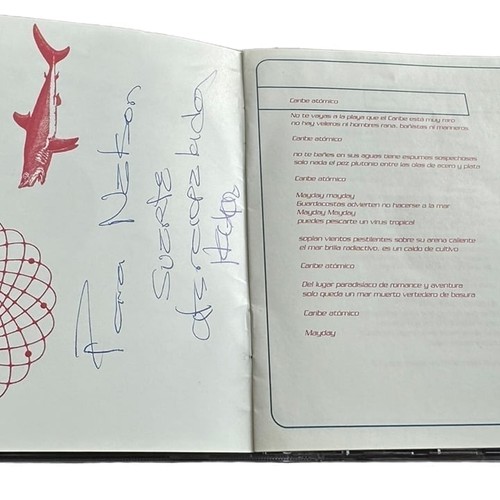 Para Nelson
Suerte
Caribe atómico
No te vayas a la playa que el Caribe está muy raro
no hay veleros ni hombres rana, bañistas ni marineros
Caribe atómico
no te bañes en sus aguas tiene espumas sospechosas
solo nada el pez plutonio entre las olas de acero y plata
Caribe atómico
Mayday mayday
Guardacostas advierten no hacerse a la mar
Mayday Mayday
puedes pescarte un virus tropical
soplan vientos pestilentes sobre su arena caliente
el mar brilla radiactivo, es un caldo de cultivo
Caribe atómico
Del lugar paradisíaco de romance y aventura
solo queda un mar muerto vertedero de basura
Caribe atómico
Mayday